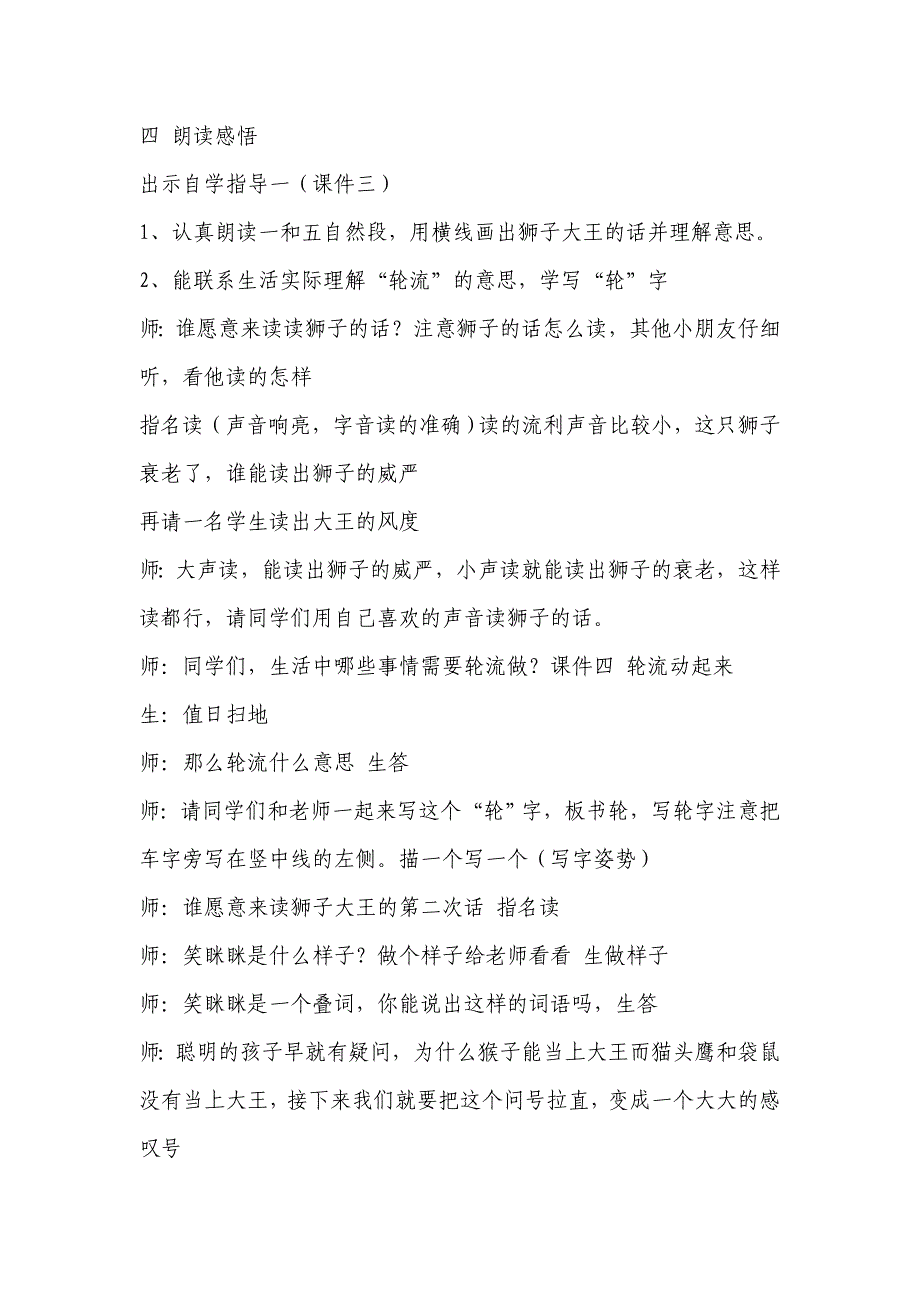 四 朗读感悟
出示自学指导一（课件三）
1、认真朗读一和五自然段，用横线画出狮子大王的话并理解意思。
2、能联系生活实际理解“轮流”的意思，学写“轮”字
师：谁愿意来读读狮子的话？注意狮子的话怎么读，其他小朋友仔细
听，看他读的怎样
指名读（声音响亮，字音读的准确）读的流利声音比较小，这只狮子
衰老了，谁能读出狮子的威严
再请一名学生读出大王的风度
师：大声读，能读出狮子的威严，小声读就能读出狮子的衰老，这样
读都行，请同学们用自己喜欢的声音读狮子的话。
师：同学们，生活中哪些事情需要轮流做？课件四 轮流动起来
生：值日扫地
师：那么轮流什么意思 生答
师：请同学们和老师一起来写这个“轮”字，板书轮，写轮字注意把
车字旁写在竖中线的左侧。描一个写一个（写字姿势）
师：谁愿意来读狮子大王的第二次话 指名读
师：笑眯眯是什么样子？做个样子给老师看看 生做样子
师：笑眯眯是一个叠词，你能说出这样的词语吗，生答
师：聪明的孩子早就有疑问，为什么猴子能当上大王而猫头鹰和袋鼠
没有当上大王，接下来我们就要把这个问号拉直，变成一个大大的感
叹号